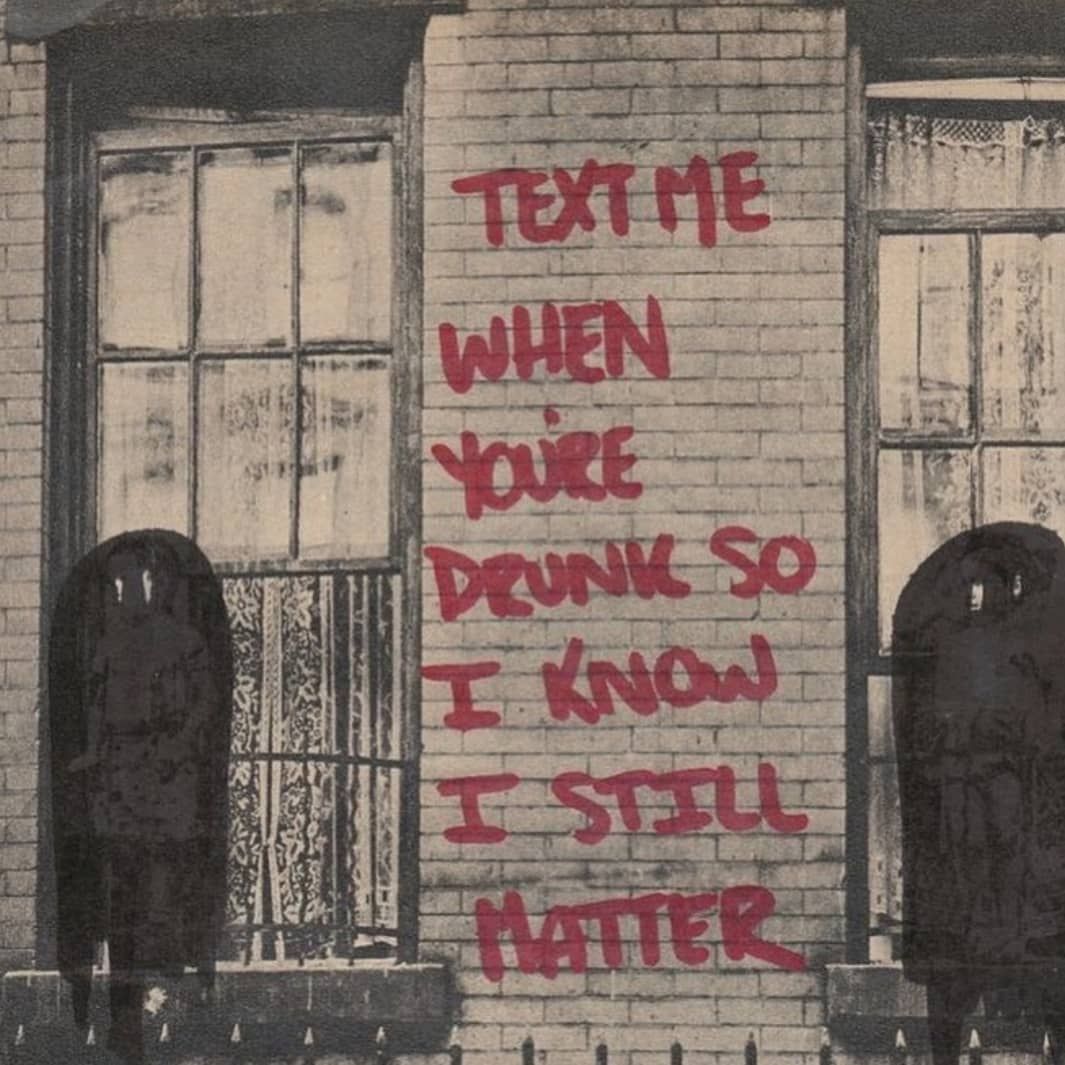 TEXT ME
WHEN
YOU'RE
DRUNK SO
I KNOW
I STILL
MATTER